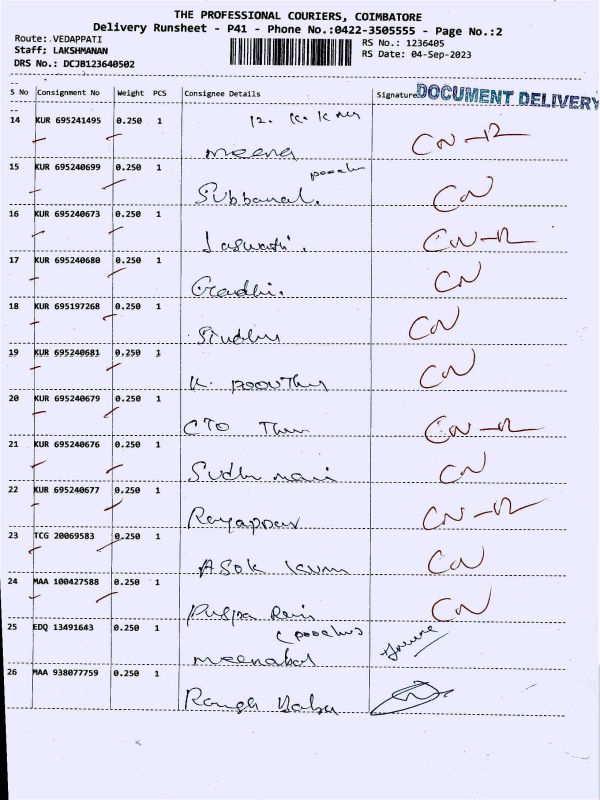 THE PROFESSIONAL COURIERS, COIMBATORE
Delivery Runsheet - P41 - Phone No.:0422-3505555 - Page No.:2
Route: VEDAPPATI
RS No.: 1236405
Staff; LAKSHMANAN
RS Date: 04-Sep-2023
DRS No.: DCJB123640502
S No Consignment No Weight PCS Consignee Details Signature DOCUMENT DELIVERY
14 KUR 695241495 0.250 1
meena CN-R
15 KUR 695240699 0.250 1
Subbanal. CN
16 KUR 695240673 0.250 1
CN-R
17 KUR 695240680 0.250 1
CN
18 KUR 695197268 0.250 1
Sindhu CN
19 KUR 695240681 0.250 1
K. CN
20 KUR 695240679 0.250 1
CTO CN-R
21 KUR 695240676 0.250 1
Sudha mani CN
22 KUR 695240677 0.250 1
Rayappar CN-R
23 TCG 20069583 0.250 1
ASOK kum CN
24 MAA 100427588 0.250 1
Puspa Rani CN
25 EDQ 13491643 0.250 1
meenabal
26 MAA 938077759 0.250 1
Rangh Babu